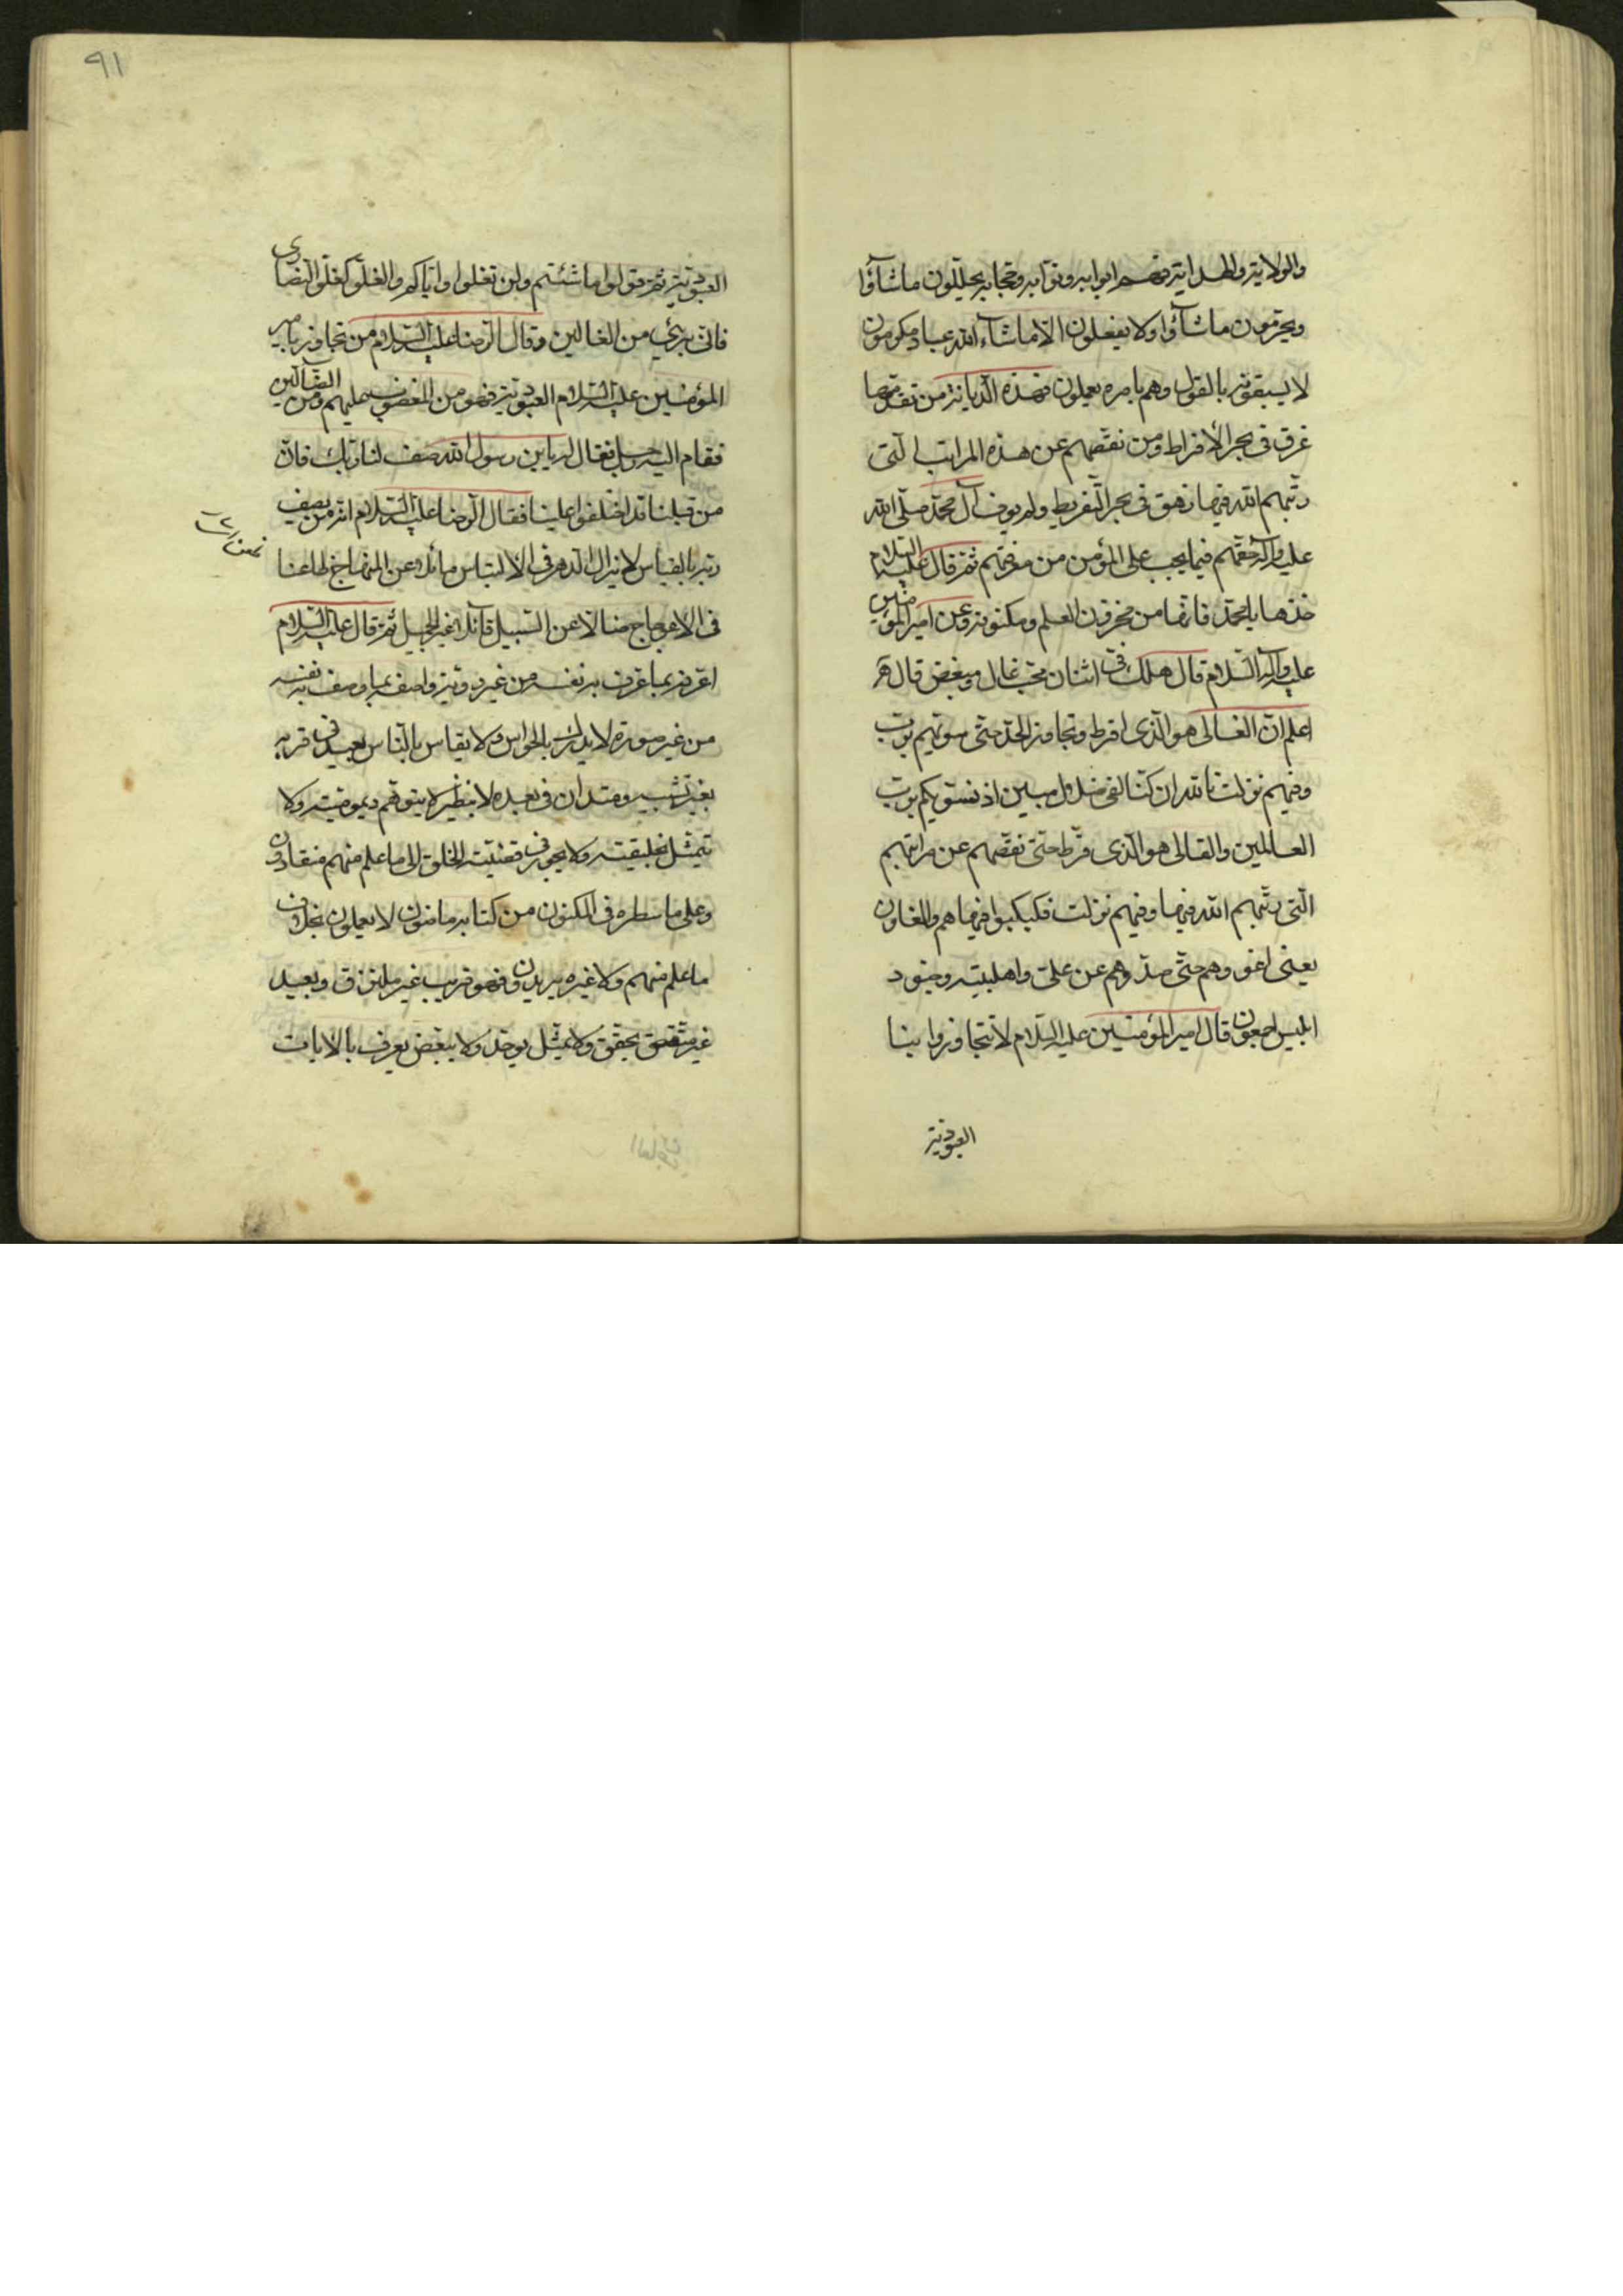 والولاية والهداية فهم ابوابه ونوابه وحجابه يحللون ماشاؤا
ويحرمون ماشاؤا ولا يفعلون الا ماشاء الله عباد مكرمون
لا يسبقونه بالقول وهم بامره يعملون فهذه الديانة من تقدمها
غرق فى بحر الافراط ومن نقصهم عن هذه المراتب التى
رتبهم الله فيها زهق فى بحر التفريط ولم يوف آل محمد صلى الله
عليه وآله حقهم فيما يجب على المؤمن من معرفتهم ثم قال عليه السلام
خذها يا محمد فانها من مخزون العلم ومكنونه وعن امير المؤمنين
عليه وآله السلام قال هلك فى اثنان محب غال ومبغض قال
اعلم ان الغالى هو الذى افرط وتجاوز الحد حتى سويهم برب
وفيهم نزلت تالله ان كنا لفى ضلال مبين اذ نسويكم برب
العالمين والقالى هو الذى فرط حتى نقصهم عن مراتبهم
التى رتبهم الله فيها وفيهم نزلت فكبكبوا فيها هم والغاون
يعنى اغووهم حتى صدوهم عن على واهلبيته وجنود
ابليس اجمعون قال امير المؤمنين عليه السلام لا تتجاوزوا بنا
العبودية
٩١
العبودية ثم قولوا ما شئتم ولن تغلوا واياكم والغلو كغلو النصارى
فانى برئ من الغالين وقال الرضا عليه السلام من تجاوز بامير
المؤمنين عليه السلام العبودية فهو من المغضوب عليهم ومن الضالين
فقام اليه رجل فقال له يابن رسول الله صف لنا ربك فان
من قبلنا قد اختلفوا علينا فقال الرضا عليه السلام انه من يصف
ربه بالقياس لا يزال الدهر فى الالتباس مائلا عن المنهاج ظاعنا
فى الاعوجاج ضالا عن السبيل قائلا غير الجميل ثم قال عليه السلام
اعرفه بما عرف به نفسه من غير روية واصفه بما وصف به نفسه
من غير صورة لا يدرك بالحواس ولا يقاس بالناس بعيد فى قربه
بغير تشبيه ومتدان فى بعده لا بنظير لا يتوهم ديموميته ولا
تمثل بخليقته ولا يجور فى قضيته الخلق الى ما علم منهم منقادون
وعلى ما سطره فى المكنون من كتابه ماضون لا يعملون بخلاف
ما علم منهم ولا غيره يريدون فهو قريب غير ملتزق وبعيد
غير متقص يحقق ولا يمثل يوحد ولا يبعض يعرف بالايات